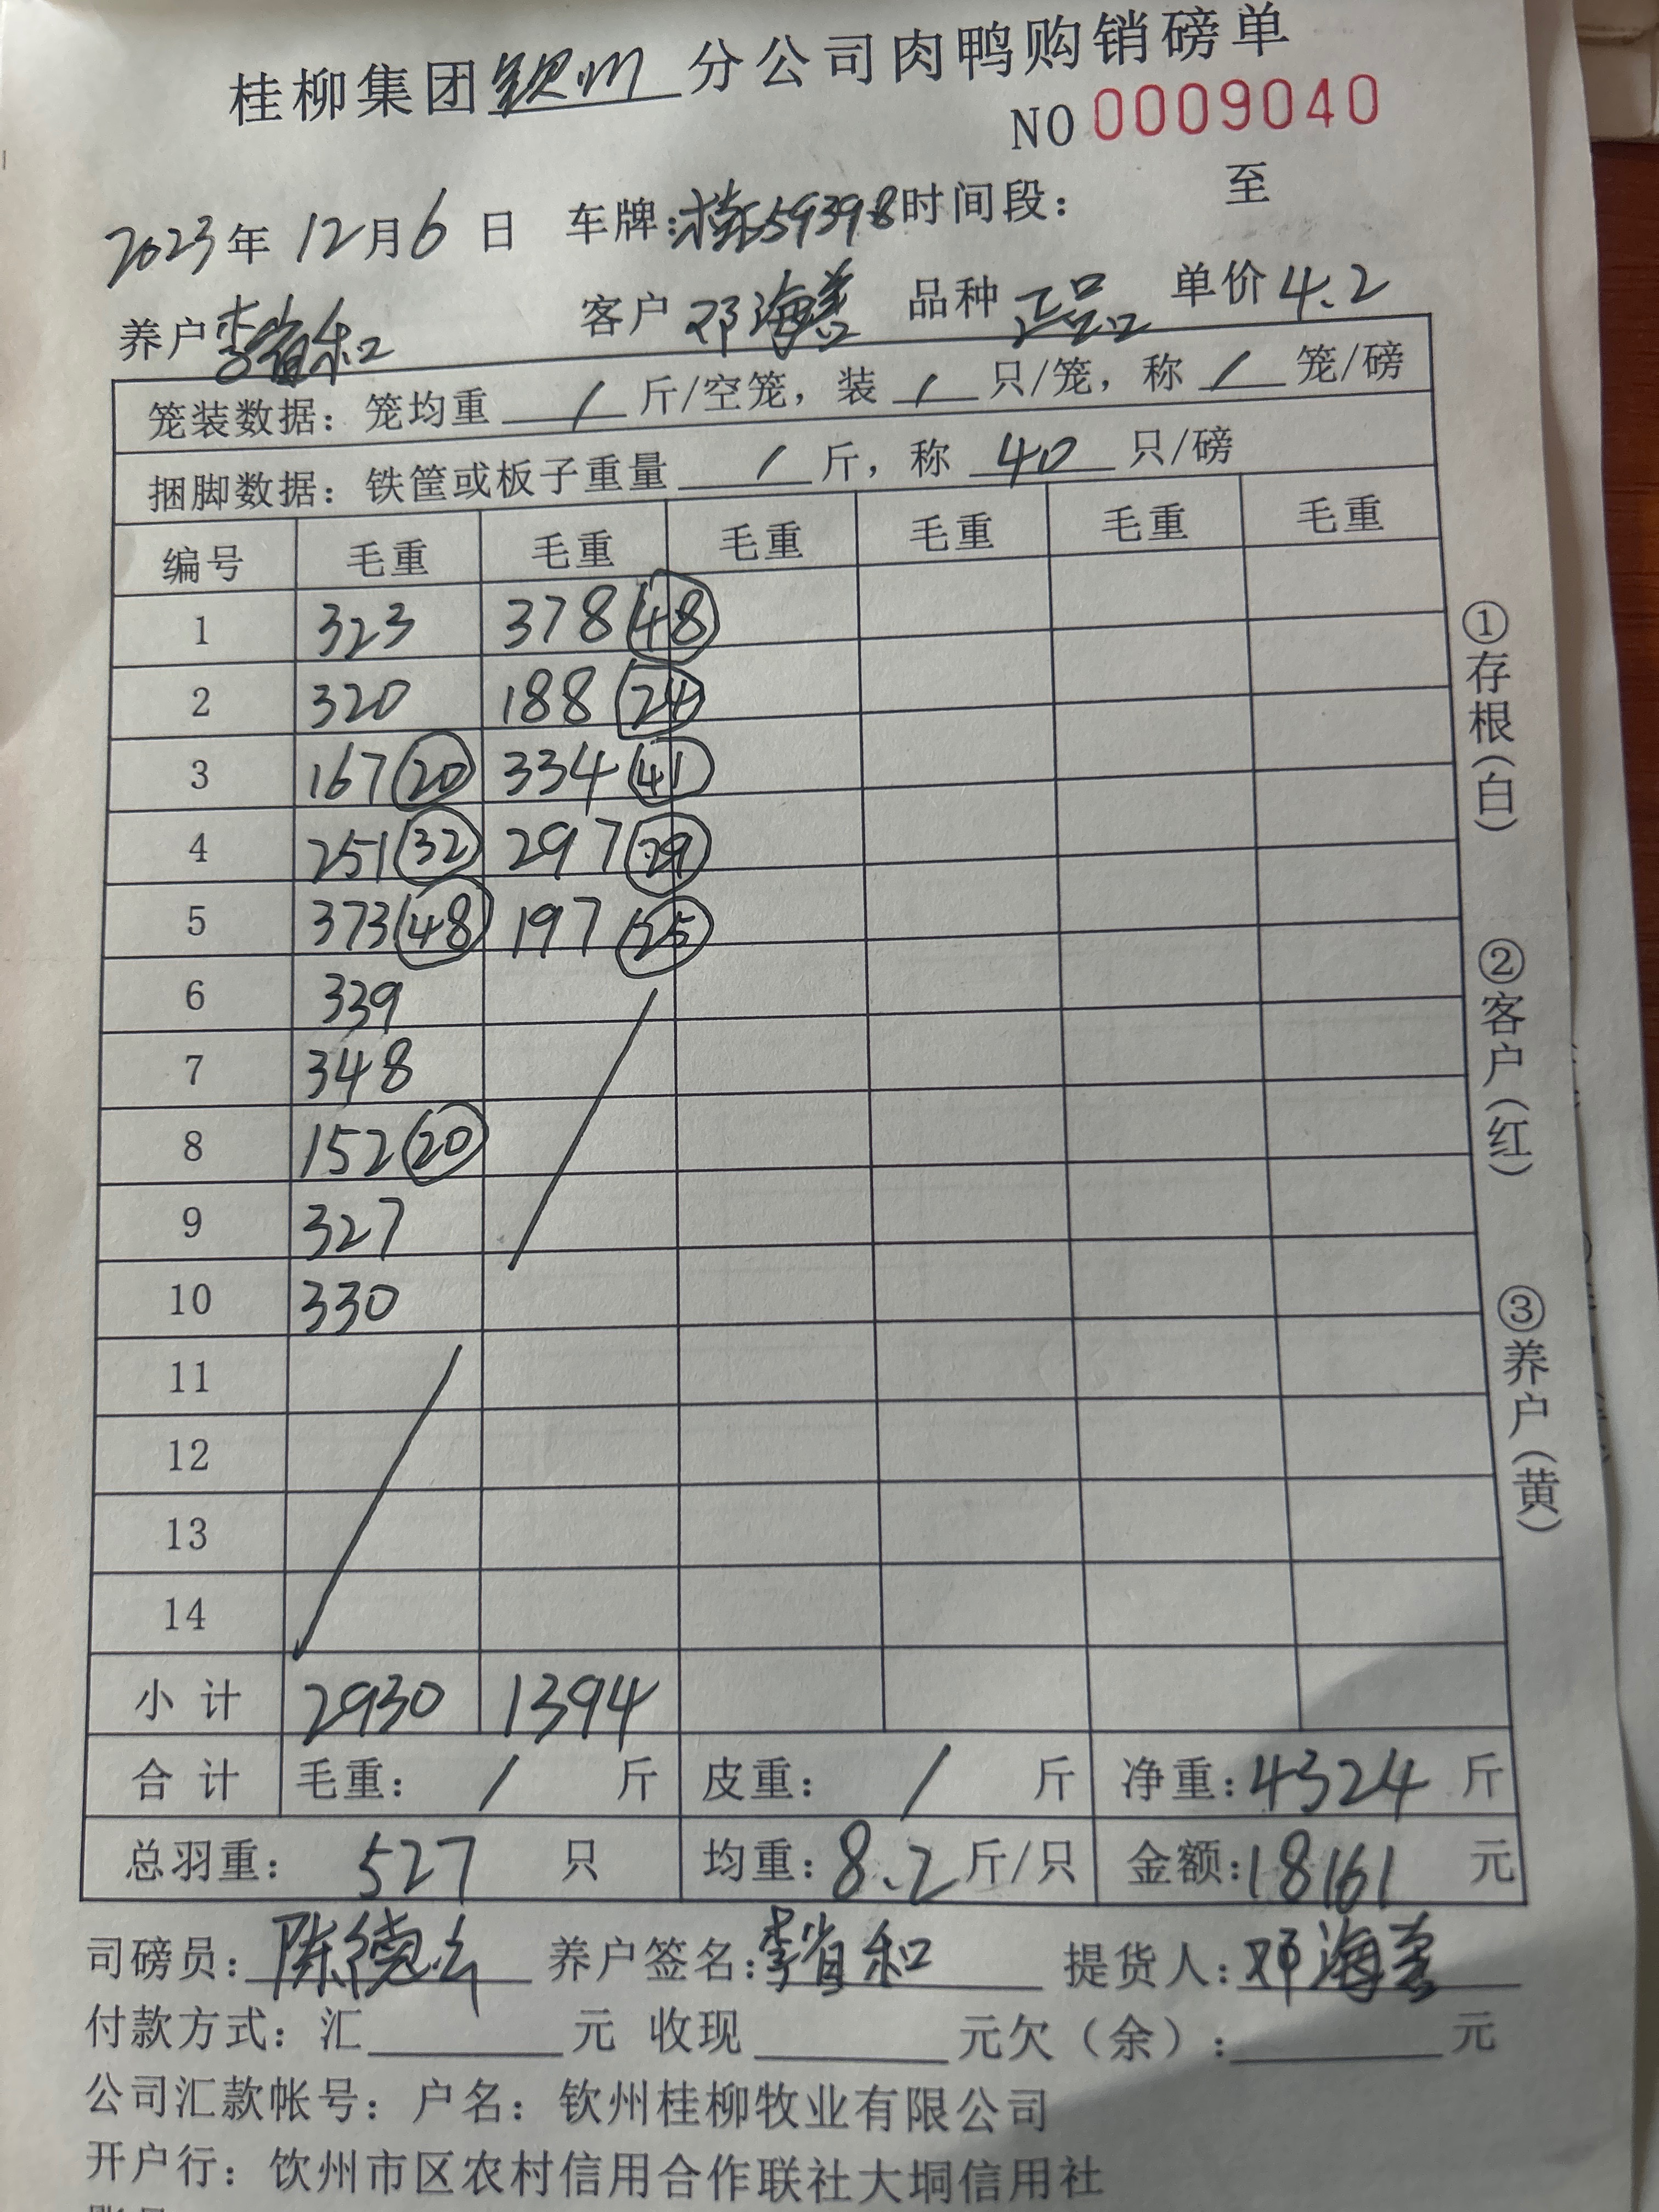 桂柳集团钦州分公司肉鸭购销磅单
NO 0009040
2023年12月6日 车牌:桂E59398 时间段: 至
养户 李省和 客户 邓海 品种 正品 单价 4.2
笼装数据：笼均重 / 斤/空笼，装 / 只/笼，称 / 笼/磅
捆脚数据：铁筐或板子重量 / 斤，称 40 只/磅
编号 毛重 毛重 毛重 毛重 毛重 毛重
1 323 378 (48)
2 320 188 (24)
3 167 (20) 334 (41)
4 251 (32) 297 (29)
5 373 (48) 197 (25)
6 339
7 348
8 152 (20)
9 327
10 330
11
12
13
14
小计 2930 1394
合计 毛重： / 斤 皮重： / 斤 净重：4324 斤
总羽重： 527 只 均重：8.2 斤/只 金额：18161 元
司磅员：陈德 养户签名：李省和 提货人：邓海
付款方式：汇 元 收现 元欠（余）： 元
公司汇款帐号：户名：钦州桂柳牧业有限公司
开户行：钦州市区农村信用合作联社大垌信用社
①存根（白）
②客户（红）
③养户（黄）